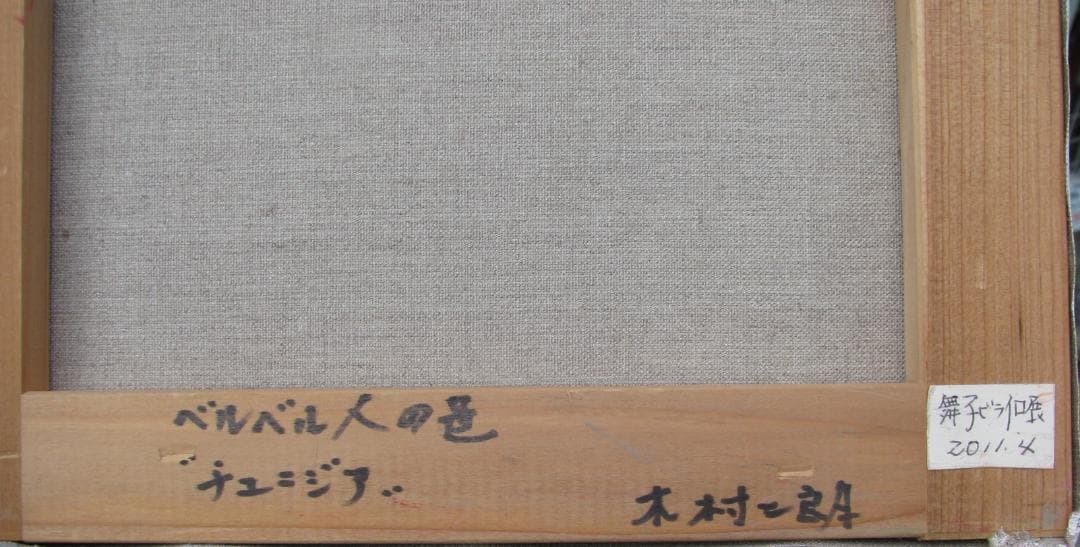 ベルベル人の邑
"チュニジア"
木村二朗
舞子ビラ個展
2011.4